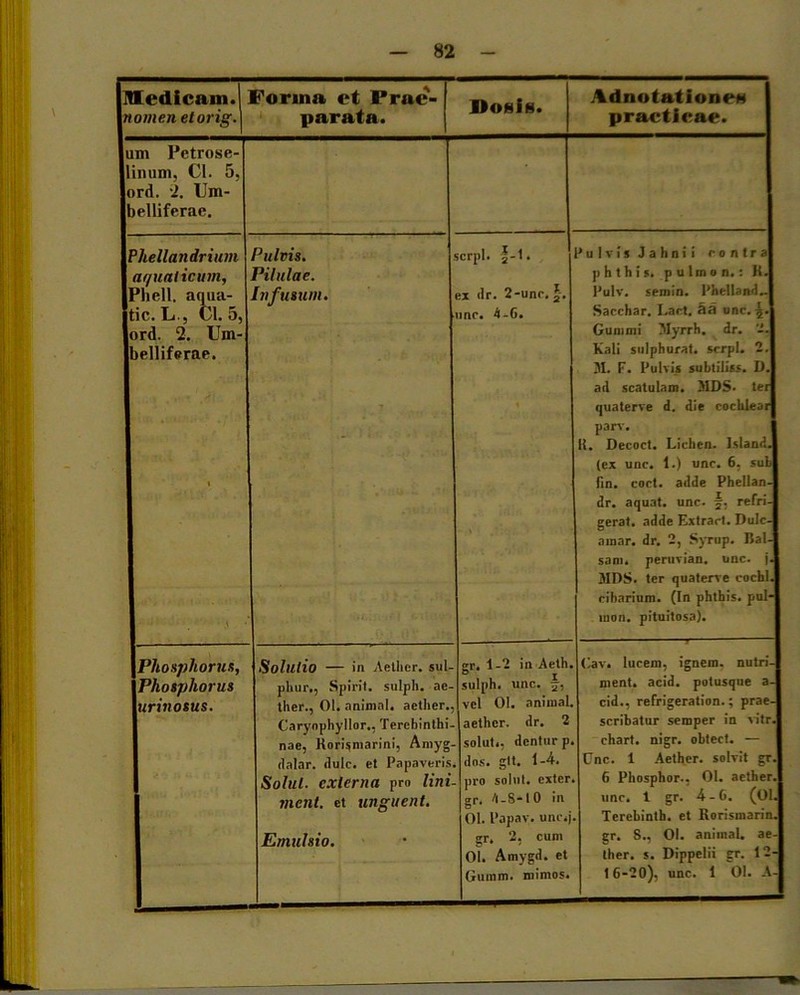 — 82 —
Medicam.
nomen et orig.
Forma et Prae-
parata.
Dosis.
Adnotationes
practicae.
um Petrose-
linum, Cl. 5,
ord. 2. Um-
belliferae.
Phellandrium
aquaticum,
Phell. aqua-
tic. L., Cl. 5,
ord. 2. Um-
belliferae.
Pulvis.
Pilulae.
Infusum.
scrpl. ½-1.
ex dr. 2-unc. ½.
unc. 4-6.
Pulvis Jahnii contra
phthis. pulmon.: R.
Pulv. semin. Phelland.
Sacchar. Lact. āā unc. ½.
Gummi Myrrh. dr. 2.
Kali sulphurat. scrpl. 2.
M. F. Pulvis subtiliss. D.
ad scatulam. MDS. ter
quaterve d. die cochlear
parv.
R. Decoct. Lichen. Island.
(ex unc. 1.) unc. 6, sub
fin. coct. adde Phellan-
dr. aquat. unc. ½, refri-
gerat. adde Extract. Dulc-
amar. dr. 2, Syrup. Bal-
sam. peruvian. unc. j.
MDS. ter quaterve cochl.
cibarium. (In phthis. pul-
mon. pituitosa).
Phosphorus,
Phosphorus
urinosus.
Solutio — in Aether. sul-
phur., Spirit. sulph. ae-
ther., Ol. animal. aether.,
Caryophyllor., Terebinthi-
nae, Rorismarini, Amyg-
dalar. dulc. et Papaveris.
Solut. externa pro lini-
ment. et unguent.
Emulsio.
gr. 1-2 in Aeth.
sulph. unc. ½,
vel Ol. animal.
aether. dr. 2
solut., dentur p.
dos. gtt. 1-4.
pro solut. exter.
gr. 4-8-10 in
Ol. Papav. unc. j.
gr. 2, cum
Ol. Amygd. et
Gumm. mimos.
Cav. lucem, ignem. nutri-
ment. acid. potusque a-
cid., refrigeration.; prae-
scribatur semper in vitr.
chart. nigr. obtect. —
Unc. 1 Aether. solvit gr.
6 Phosphor., Ol. aether.
unc. 1 gr. 4-6. (Ol.
Terebinth. et Rorismarin.
gr. 8., Ol. animal. ae-
ther. s. Dippelii gr. 12-
16-20), unc. 1 Ol. A-